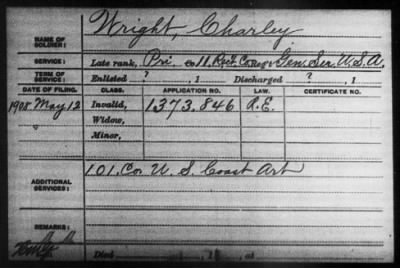 NAME OF SOLDIER: Wright, Charley
SERVICE: Late rank, Pri Co 11, Rect. Co & Gen. Ser. U.S.A,
TERM OF SERVICE: Enlisted ?, 1 Discharged ?, 1
DATE OF FILING. CLASS. APPLICATION NO. LAW. CERTIFICATE NO.
1908 May 12 Invalid, 1373.846 R.E.
Widow,
Minor,
ADDITIONAL SERVICES: 101. Co U. S. Coast Art
REMARKS:
Died , 1 , at